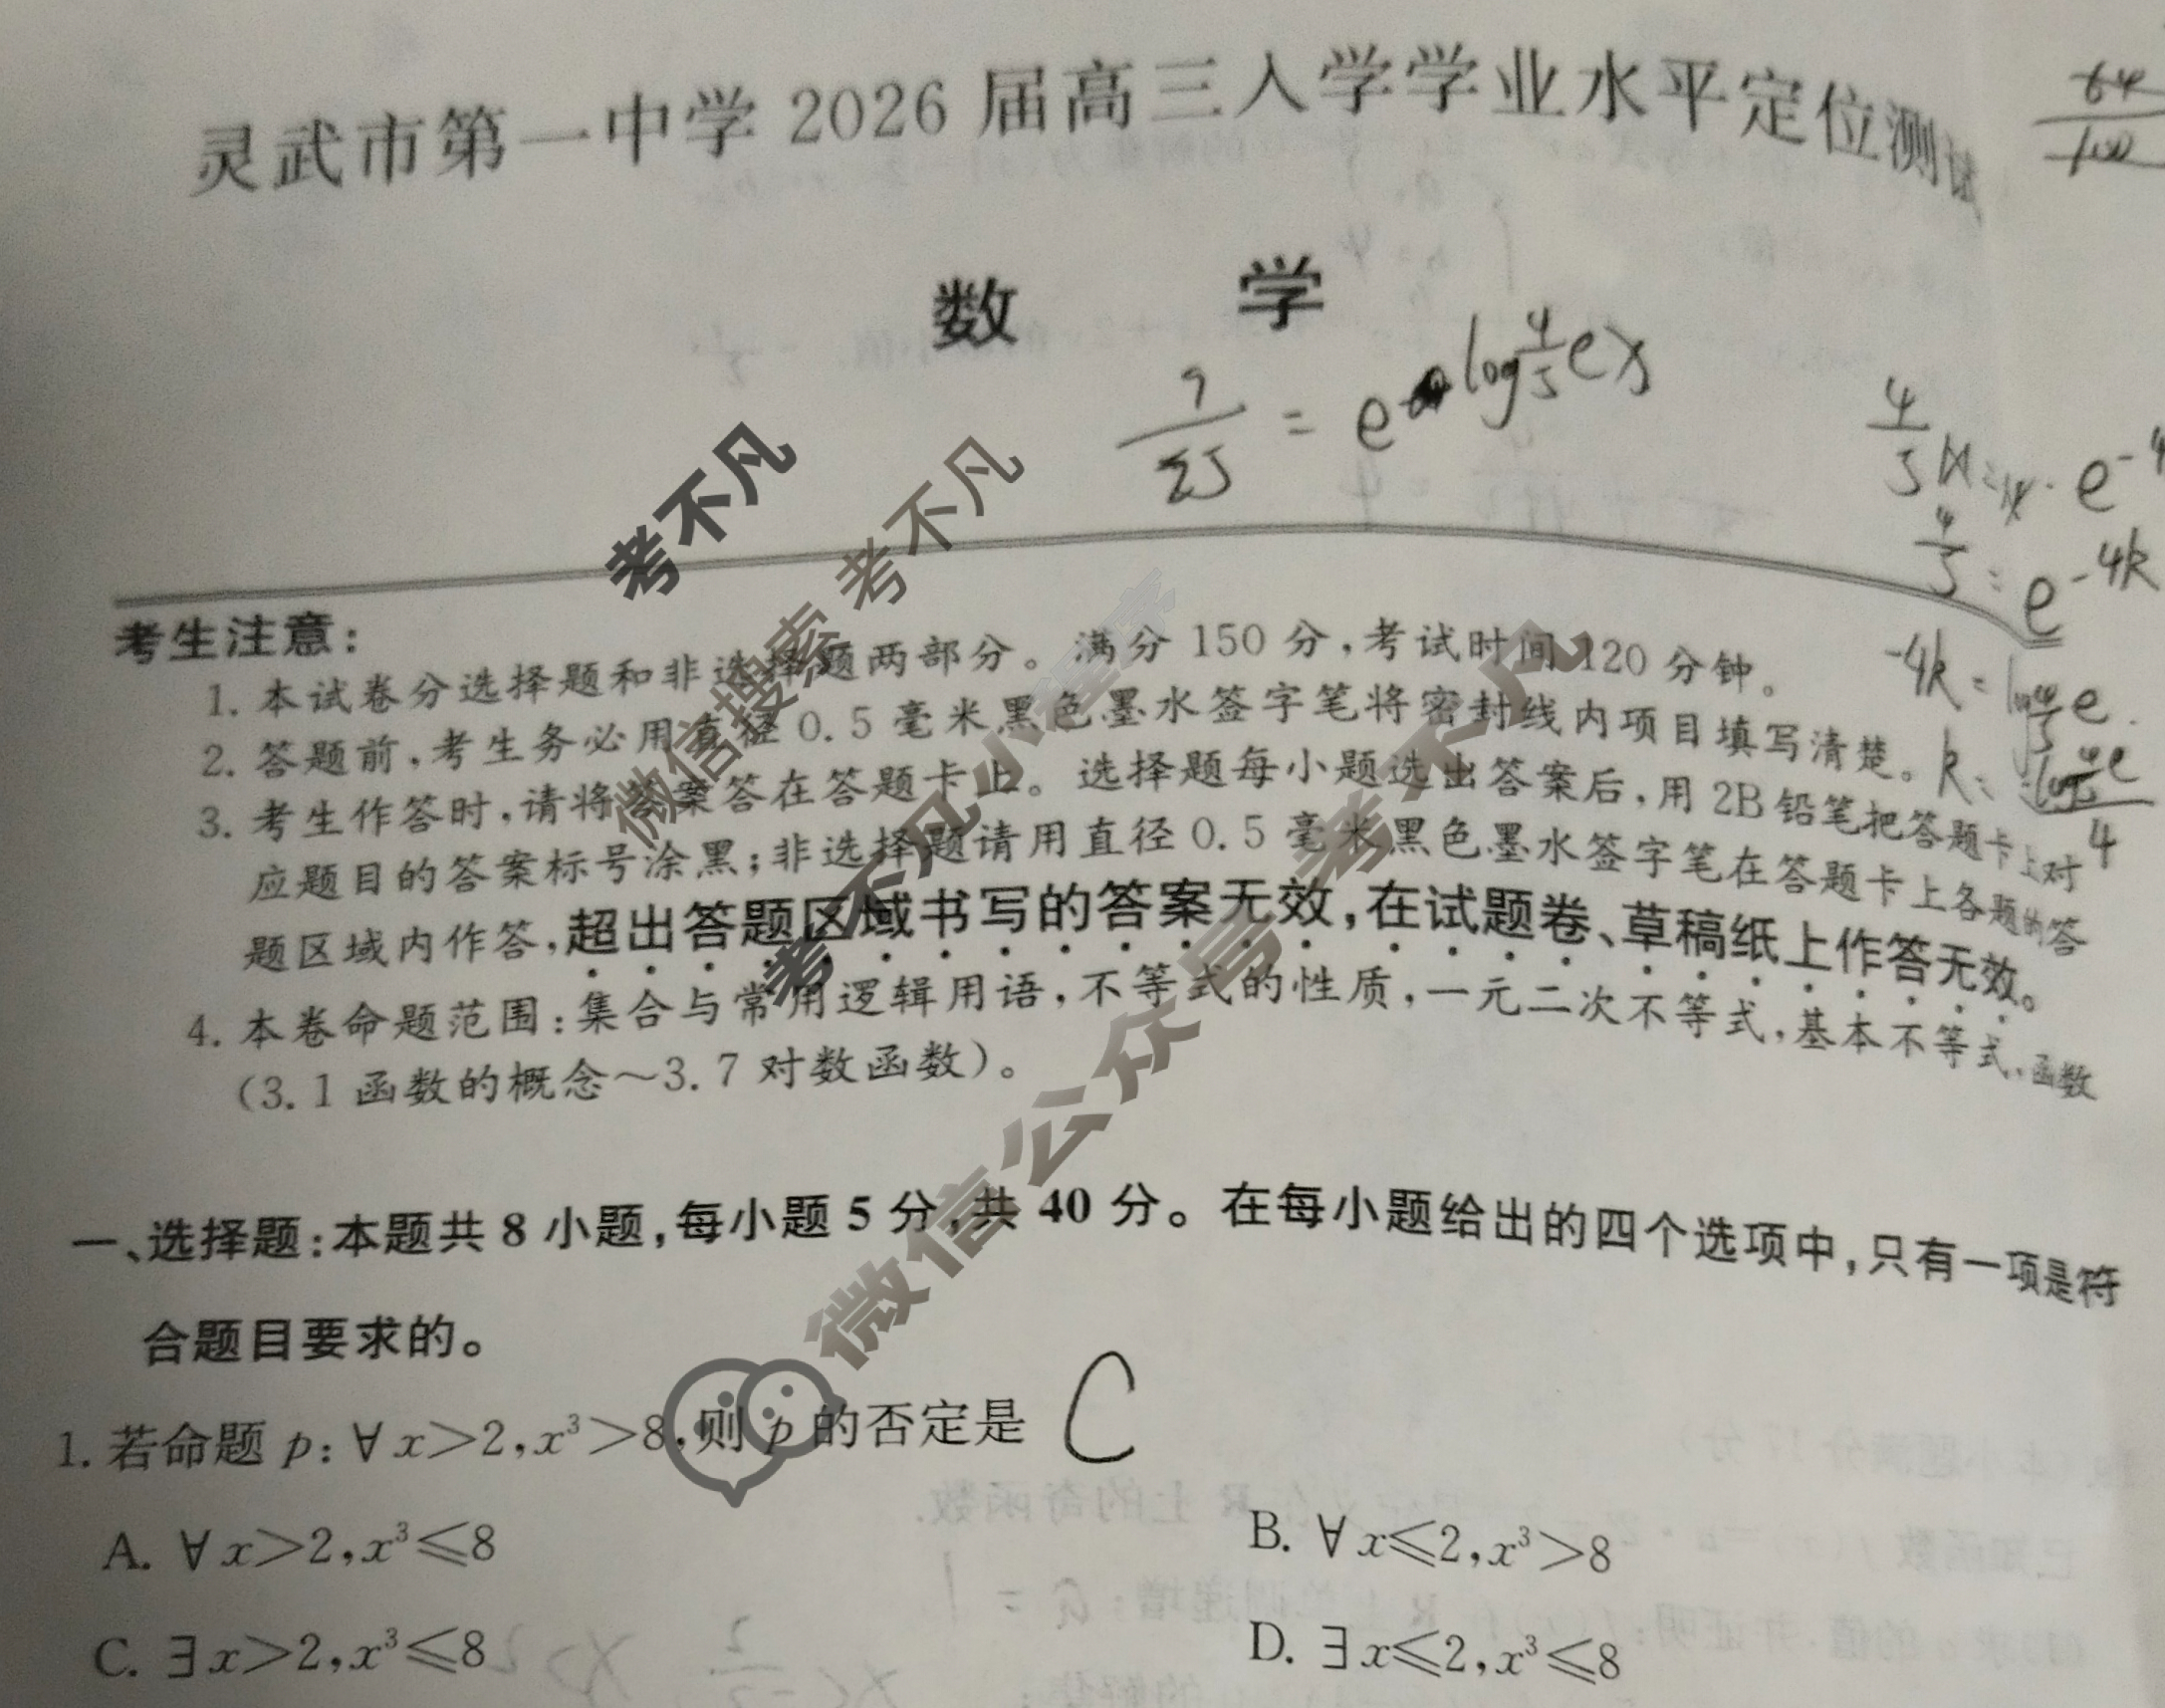 灵武市第一中学 2026 届高三入学学业水平定位测试
数 学
考生注意:
1. 本试卷分选择题和非选择题两部分。满分 150 分,考试时间 120 分钟。
2. 答题前,考生务必用直径 0.5 毫米黑色墨水签字笔将密封线内项目填写清楚。
3. 考生作答时,请将答案答在答题卡上。选择题每小题选出答案后,用 2B 铅笔把答题卡上对
应题目的答案标号涂黑;非选择题请用直径 0.5 毫米黑色墨水签字笔在答题卡上各题的答
题区域内作答,超出答题区域书写的答案无效,在试题卷、草稿纸上作答无效。
4. 本卷命题范围:集合与常用逻辑用语,不等式的性质,一元二次不等式,基本不等式,函数
(3.1 函数的概念~3.7 对数函数)。
一、选择题:本题共 8 小题,每小题 5 分,共 40 分。在每小题给出的四个选项中,只有一项是符
合题目要求的。
1. 若命题 p:∀x>2,x³>8,则 p 的否定是 C
A. ∀x>2,x³≤8
B. ∀x≤2,x³>8
C. ∃x>2,x³≤8
D. ∃x≤2,x³≤8
64/100
4/5 = e^-4k
考不凡
微信搜索 考不凡
考不凡小程序
微信公众号:考不凡